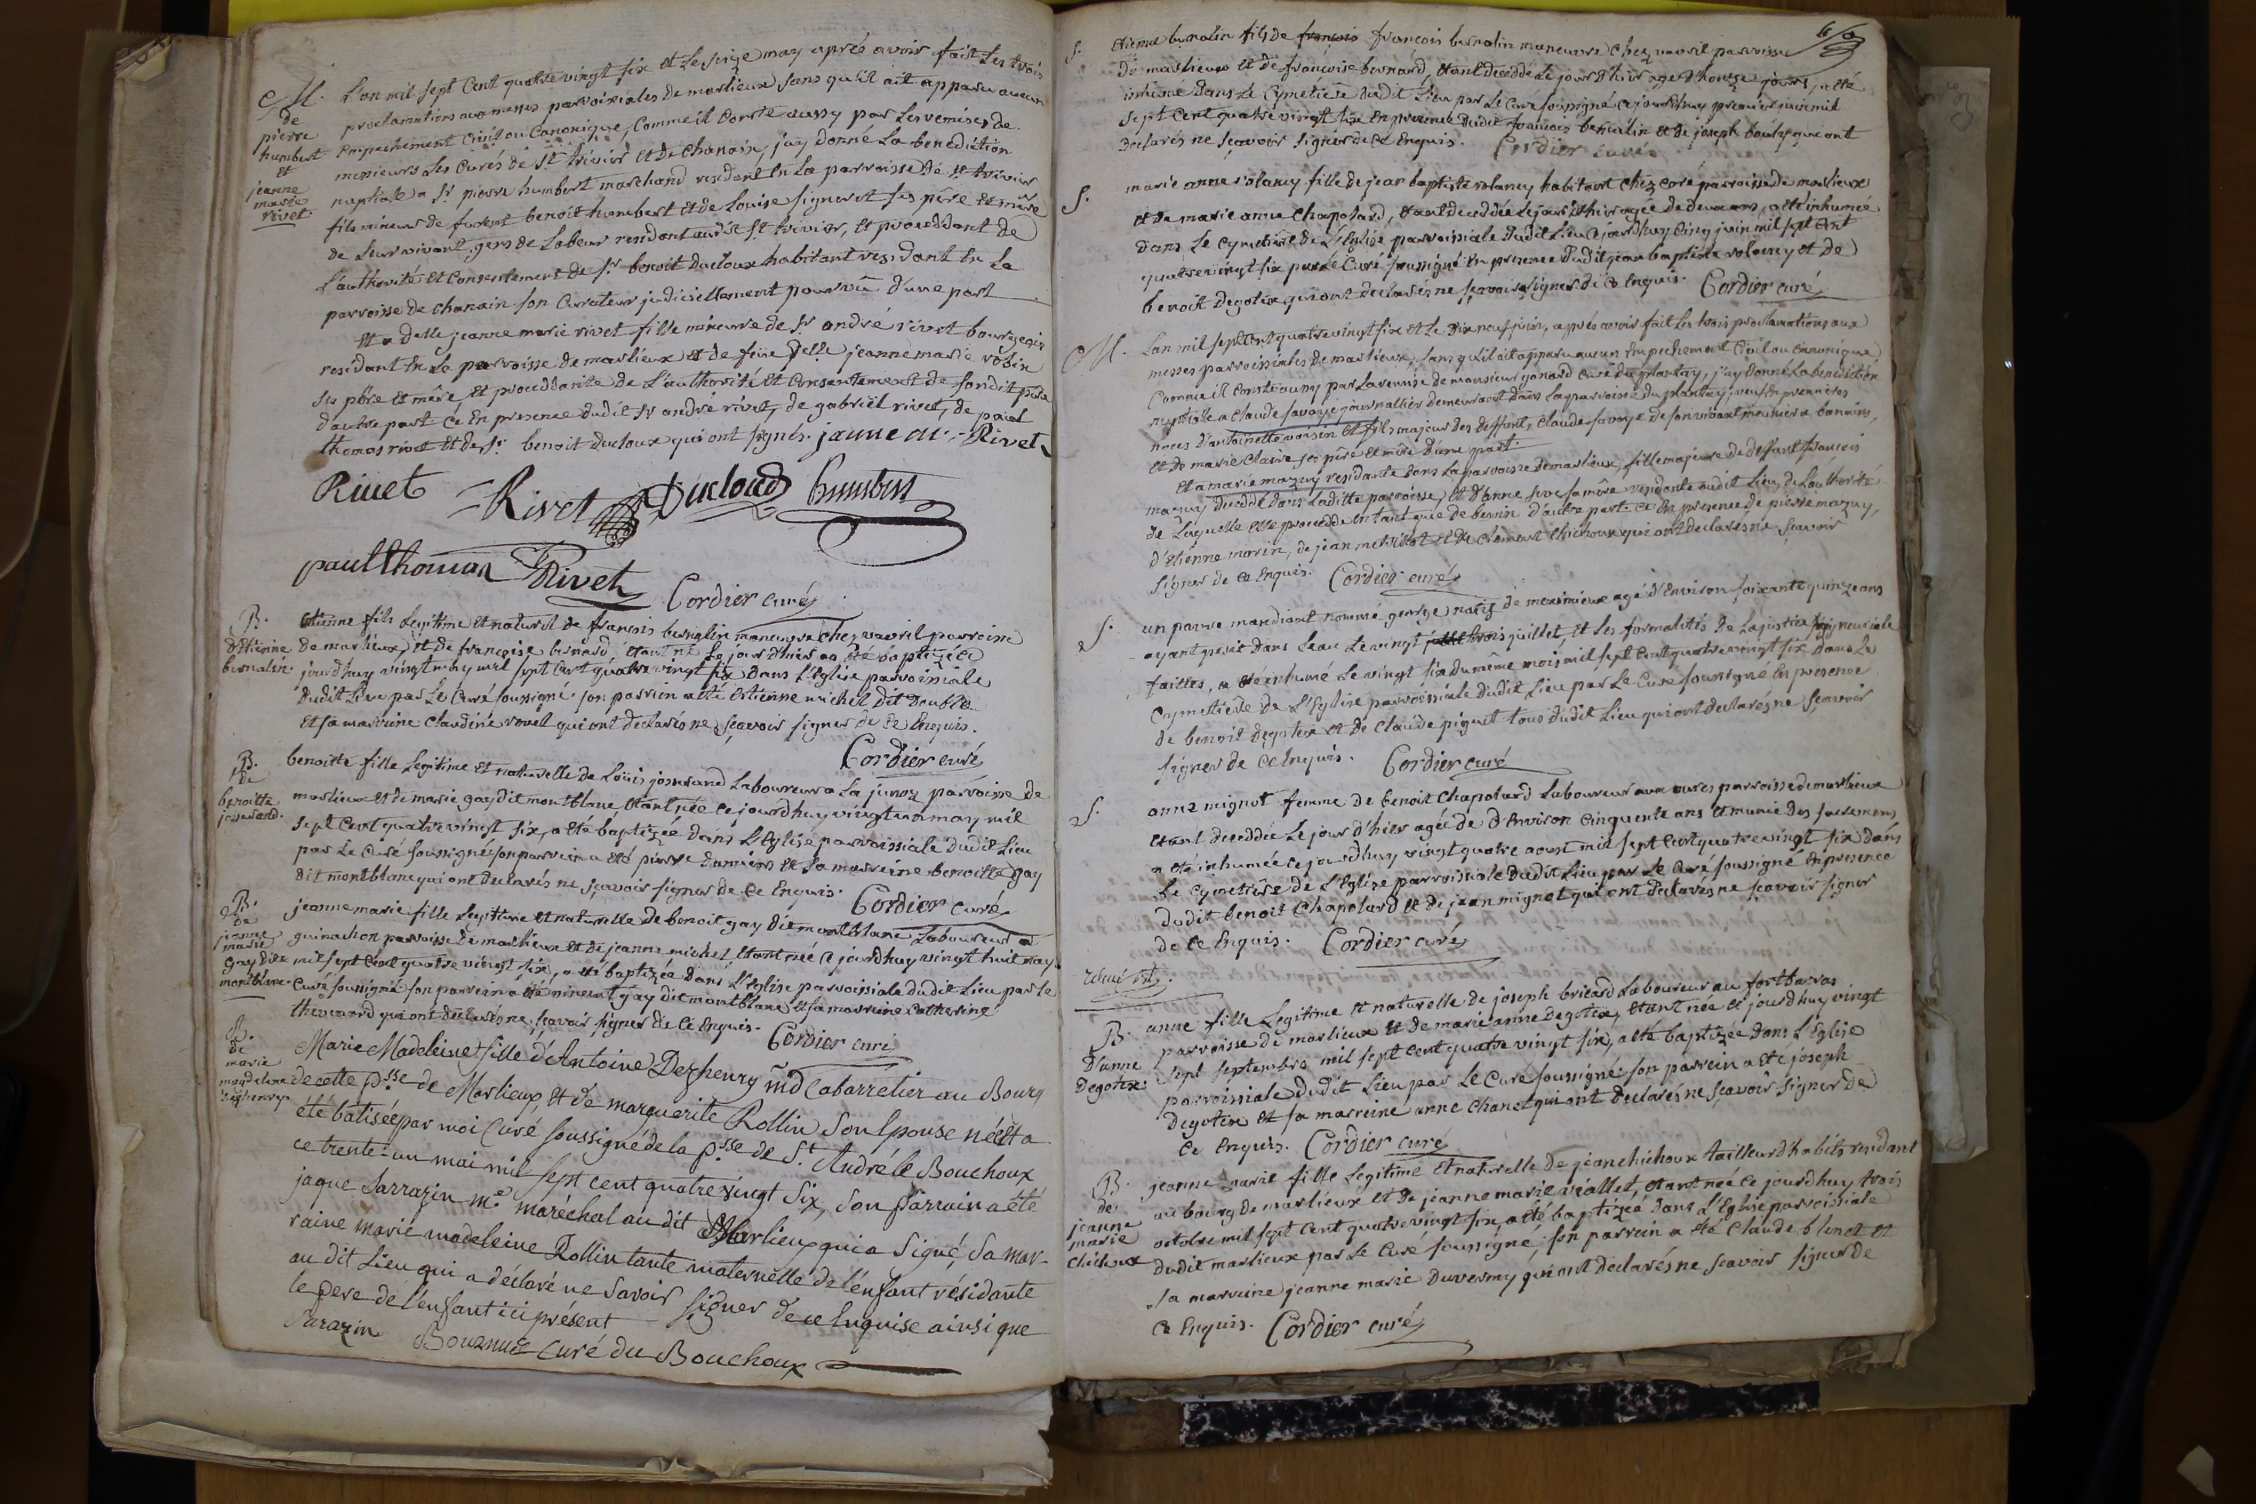 M.
de
pierre
humbert
et
jeanne
marie
rivet
L'an mil sept Cent quatre vingt six et Le seize may aprés avoir fait Les trois
proclamations aux messes parroissiales de marlieux sans qu'il ait apparu aucun
Empechement Civil ou Canonique, Comme il Conste aussy par Les remises de
messieurs Les Curés de St trivier et de Chanein, j'ay donné La benediction
nuptiale a Sr pierre humbert marchand residant En La parroisse de St trivier
fils mineur de furent benoit humbert et de Louise signeret ses pére et mére
de Leur vivant gens de Labeur residant audit St trivier, et procedant de
L'authorité et Consentement de Sr benoit ducloux habitant residant En La
parroisse de chanein son Curateur judiciellement pourvû d'une part
et a Delle jeanne marie rivet fille mineure de Sr andré rivet bourgeois
residant En La parroisse de marlieux et de feüe Delle jeanne marie robin
ses pére et mére, et procedante de L'authorité et Consentement de sondit pére
d'autre part Ce En presence dudit Sr andré rivet, de gabriël rivet, de paul
thomas rivet et de Sr benoit ducloux qui ont signés. jeanne m. Rivet
Rivet Rivet Ducloud humbert
paul thomas Rivet Cordier curé
B.
d'Etienne
bernalin
Etienne fils Legitime et naturel de francois bernalin maneuvre chez vavril parroisse
de marlieux, et de francoise bernard Etant né Le jour d'hier a été baptizé Ce
jourdhuy vingt may mil sept Cent quatre vingt six dans L'Eglise parroissiale
dudit Lieu par Le Curé soussigné son parrein a été Estienne michel dit double
et sa marreine Claudine revel qui ont declarés ne sçavoir signer de Ce Enquis.
Cordier curé
B.
de
benoitte
josserand.
benoitte fille Legitime et naturelle de Loüis josserand Laboureur a La junoz parroisse de
marlieux et de marie gay dit montblanc Etant née Ce jourdhuy vingt un may mil
sept Cent quatre vingt six, a été baptizée dans L'Eglise parroissiale dudit Lieu
par Le Curé soussigné son parrein a été pierre et sa marreine benoitte gay
dit montblanc qui ont declarés ne sçavoir signer de Ce Enquis. Cordier curé
B.
de
jeanne
marie
gay dite
montblanc
jeanne marie fille Legitime et naturelle de benoit gay dit montblanc Laboureur a
guinachon parroisse de marlieux et de jeanne michel Etant née Ce jourdhuy vingt huit may
mil sept Cent quatre vingt six, a été baptizée dans L'Eglise parroissiale dudit Lieu par Le
Curé soussigné son parrein a été vincent gay dit montblanc et sa marreine Catherine
thevenard qui ont declarés ne sçavoir signer de Ce Enquis. Cordier curé
B.
de
marie
magdelene
dezhenry
Marie Madeleine fille d'Antoine Dezhenry md Cabarretier au Bourg
de cette psse de Marlieux, et de marguerite Rollin son Epouse née et a
été batisée par moi Curé soussigné de la psse de St André le Bouchoux
ce trente-un mai mil sept cent quatre vingt six, son parrain a été
jaque Sarrazin me maréchal au dit Marlieux qui a signé, sa mar-
raine marie madeleine Rollin tante maternelle de l'enfant résidante
au dit Lieu qui a déclaré ne savoir signer de ce Enquise ainsi que
le pere de l'enfant ici présent
Sarazin curé du Bouchoux
S.
Etienne bernalin fils de francois francois bernalin maneuvre chez vavril parroisse
de marlieux et de francoise bernard, Etant decedé Le jour d'hier agé d'honze jours, a été
inhumé dans Le Cymetiére dudit Lieu par Le Curé soussigné Cejourdhuy premier juin mil
sept Cent quatre vingt six En presence dudit francois bernalin et de joseph qui ont
declarés ne sçavoir signer de Ce Enquis. Cordier curé
S.
marie anne volancy fille de jean baptiste volancy habitant chez coré parroisse de marlieux
et de marie anne Chapolard, Etant decedée Le jour d'hier agée de deux ans, a été inhumée
dans Le Cymetiére de L'Eglise parroissiale dudit Lieu Cejourdhuy Cinq juin mil sept Cent
quatre vingt six par Le Curé soussigné En presence dudit jean baptiste volancy et de
benoit degoter qui ont declarés ne sçavoir signer de Ce Enquis. Cordier curé
M.
L'an mil sept Cent quatre vingt six et Le dix neuf juin, aprés avoir fait Les trois proclamations aux
messes parroissiales de marlieux, sans qu'il ait apparu aucun Empechement Civil ou Canonique
Comme il Conste aussy par La remise de monsieur gonard Curé du plantay, j'ay donné La benediction
nuptiale a Claude savoye journallier demeurant dans La parroisse du plantay, veuf En premiéres
noces d'antoinette voisin et fils majeur des deffunts Claude savoye de son vivant meunier a
et de marie Claire ses pére et mére d'une part.
et a marie mazuy residante dans La parroisse de marlieux, fille majeure de deffunt francois
mazuy decedé dans Laditte parroisse, et d'anne sa mére residente audit Lieu, de L'authorité
de Laquelle elle procede En tant que de besoin d'autre part. Ce En presence de pierre mazuy,
d'Etienne morin, de jean et de Clement Chichoux qui ont declarés ne sçavoir
signer de Ce Enquis. Cordier curé
S.
un pauvre mandiant nommé george natif de meximieux agé d'Environ soixante quinze ans
ayant perit dans L'eau Le vingt trois juillet, et Les formalités de La justice seigneuriale
faittes, a été inhumé Le vingt six du même mois mil sept Cent quatre vingt six dans Le
Cymetiére de L'Eglise parroissiale dudit Lieu par Le Curé soussigné En presence
de benoit degoter et de Claude piquet tous dudit Lieu qui ont declarés ne sçavoir
signer de Ce Enquis. Cordier curé
S.
anne mignot femme de benoit Chapolard Laboureur aux parroisse de marlieux
Etant decedée Le jour d'hier agée de d'Environ Cinquente ans et munie des sacremens
a été inhumée Ce jourdhuy vingt quatre aoust mil sept Cent quatre vingt six dans
Le Cymetiére de L'Eglise parroissiale dudit Lieu par Le Curé soussigné En presence
dudit benoit Chapolard et de jean mignot qui ont declarés ne sçavoir signer
de Ce Enquis. Cordier curé
B.
D'anne
Degoter
anne fille Legitime et naturelle de joseph bricard Laboureur au fort barras
parroisse de marlieux et de marie anne degoter, Etant née Ce jourdhuy vingt
sept septembre mil sept cent quatre vingt six, a été baptizée dans L'Eglise
parroissiale dudit Lieu par Le Curé soussigné son parrein a été joseph
degoter et sa marreine anne Chanel qui ont declarés ne sçavoir signer de
Ce Enquis. Cordier curé
B.
de
jeanne
marie
chichoux
jeanne marie fille Legitime et naturelle de jean chichoux tailleur d'habits residant
au bourg de marlieux et de jeanne marie viallet, Etant née Ce jourdhuy trois
octobre mil sept Cent quatre vingt six, a été baptizée dans L'Eglise parroissiale
dudit marlieux par Le Curé soussigné, son parrein a été Claude blanet et
sa marreine jeanne marie duvernay qui ont declarés ne sçavoir signer de
Ce Enquis. Cordier curé